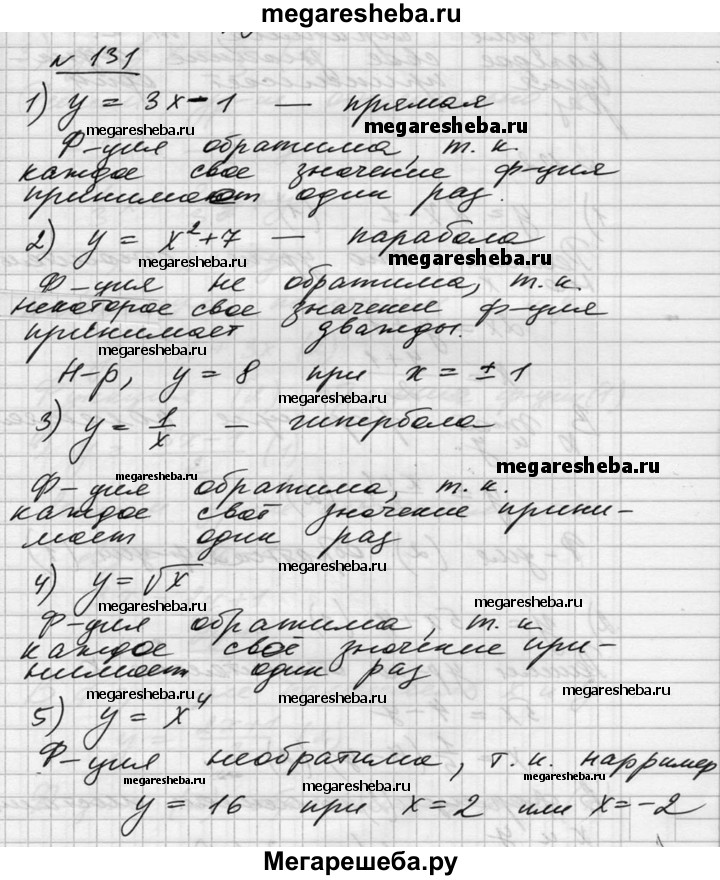 megaresheba.ru
№ 131
1) y = 3x - 1 — прямая
megaresheba.ru megaresheba.ru
Ф-ция обратима, т. к.
каждое свое значение ф-ция
принимает один раз.
2) y = x²+7 — парабола
megaresheba.ru megaresheba.ru
Ф-ция не обратима, т. к.
некоторое свое значение ф-ция
принимает дважды.
megaresheba.ru
Н-р, y = 8 при x = ± 1
megaresheba.ru
3) y = 1/x — гипербола
megaresheba.ru
megaresheba.ru
Ф-ция обратима, т. к.
каждое своё значение прини-
мает один раз
megaresheba.ru
4) y = √x
megaresheba.ru megaresheba.ru
Ф-ция обратима, т. к.
каждое своё значение при-
нимает один раз
megaresheba.ru megaresheba.ru megaresheba.ru
5) y = x⁴
Ф-ция необратима, т. к. например
megaresheba.ru megaresheba.ru megaresheba.ru
y = 16 при x = 2 или x = -2
Мегарешеба.ру